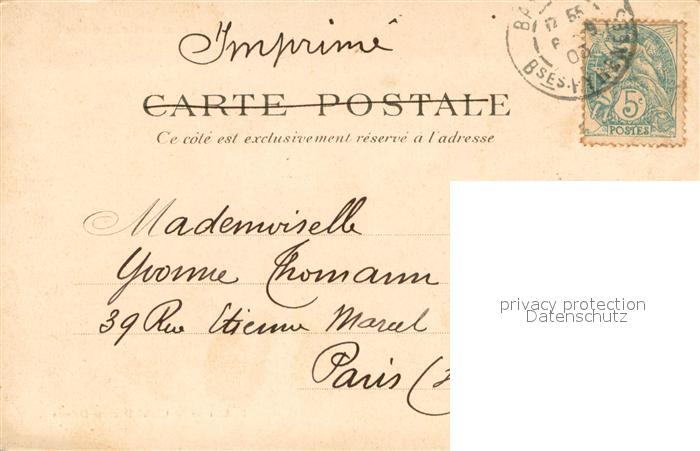 Imprimé
CARTE POSTALE
Ce côté est exclusivement réservé à l'adresse
5c
POSTES
BSES-PYRÉNÉES
Mademoiselle
Yvonne Thomann
39 Rue Etienne Marcel
Paris (
privacy protection
Datenschutz